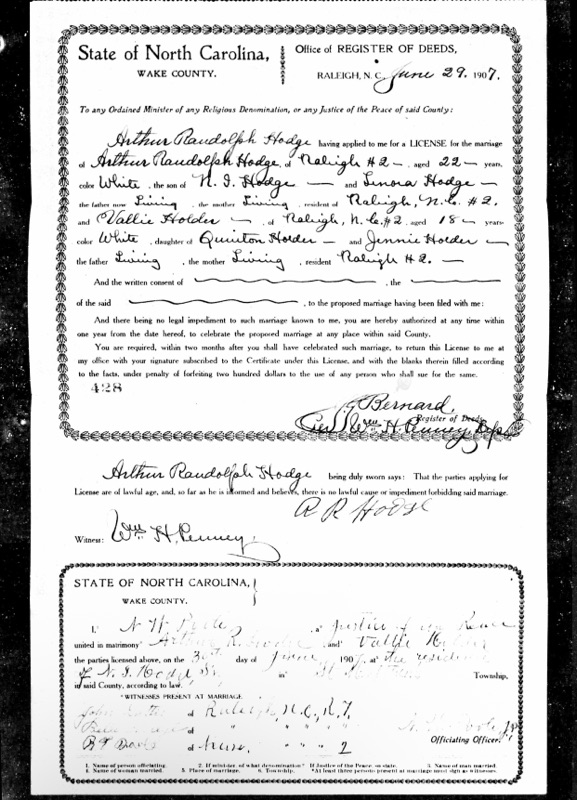 State of North Carolina,
WAKE COUNTY.
Office of REGISTER OF DEEDS,
RALEIGH, N. C. June 29. 1907.
To any Ordained Minister of any Religious Denomination, or any Justice of the Peace of said County:
Arthur Randolph Hodge having applied to me for a LICENSE for the marriage
of Arthur Randolph Hodge, of Raleigh #2, aged 22 years,
color White, the son of N. I. Hodge and Lenora Hodge
the father now Living, the mother Living, resident of Raleigh, N.C. #2.
and Vallie Holder, of Raleigh, N.C. #2 aged 18 years
color White, daughter of Quinton Holder and Jennie Holder
the father Living, the mother Living, resident Raleigh #2.
And the written consent of , the
of the said , to the proposed marriage having been filed with me:
And there being no legal impediment to such marriage known to me, you are hereby authorized at any time within
one year from the date hereof, to celebrate the proposed marriage at any place within said County.
You are required, within two months after you shall have celebrated such marriage, to return this License to me at
my office with your signature subscribed to the Certificate under this License, and with the blanks therein filled according
to the facts, under penalty of forfeiting two hundred dollars to the use of any person who shall sue for the same.
428
Bernard,
Register of Deeds
Wm H. Penney, Dept
Arthur Randolph Hodge being duly sworn says: That the parties applying for
License are of lawful age, and, so far as he is informed and believes, there is no lawful cause or impediment forbidding said marriage.
A R Hodge
Witness: Wm H. Penney,
STATE OF NORTH CAROLINA,
WAKE COUNTY.
I, N W , a justice of the Peace
united in matrimony Arthur R. Hodge and Vallie Holder
the parties licensed above, on the 30 day of June 1907, at the residence
of N. I. Hodge in Township,
in said County, according to law.
*WITNESSES PRESENT AT MARRIAGE
of Raleigh, N.C., R.
of " " "
B F Davis of " " " 2
Officiating Officer.
1. Name of person officiating. 2. If minister of what denomination? If Justice of the Peace, so state. 3. Name of man married.
4. Name of woman married. 5. Place of marriage. 6. Township. *At least three persons present at marriage must sign as witnesses.